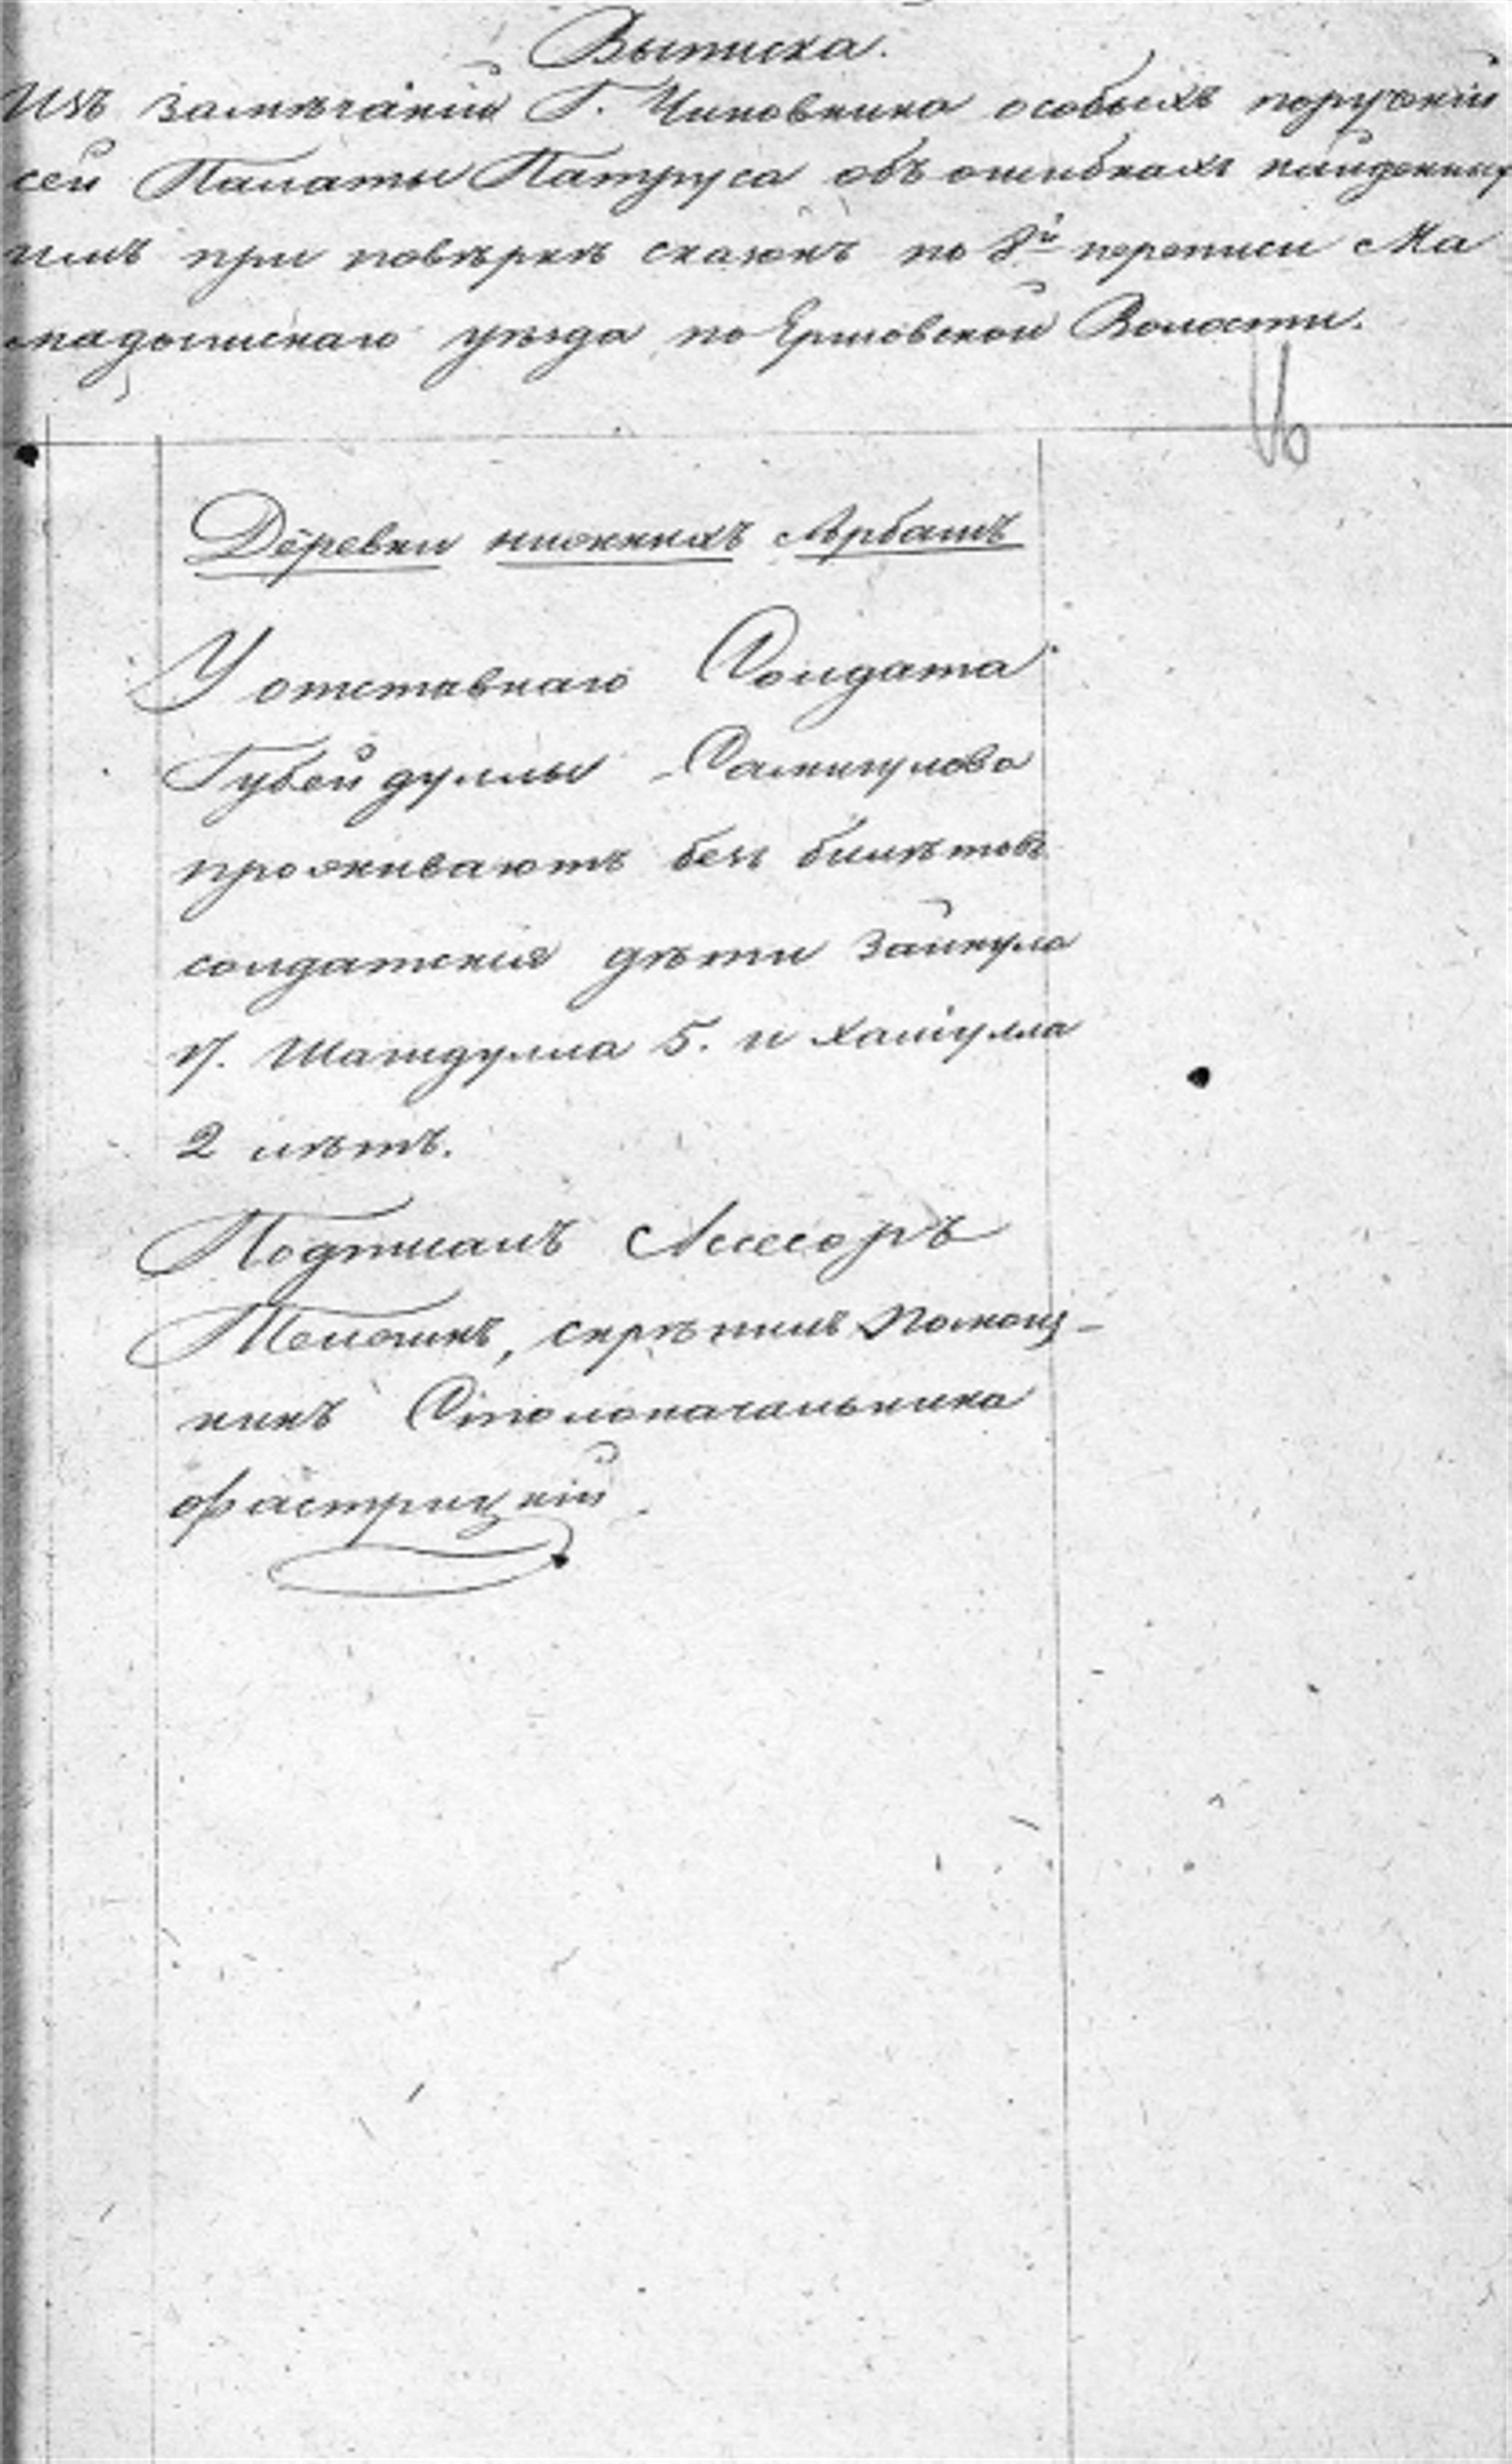 Выписка.
Изъ замѣчаній Г. Чиновника особыхъ порученій
сей Палаты Патруса объ ошибкахъ найденных
имъ при повѣркѣ сказокъ по 8й переписи Ма
мадышскаго уѣзда по Ершовской Волости.
Деревни нижнихъ Арбашъ
У отставнаго Солдата
Губейдуллы Самигулова
проживаютъ безъ билѣтовъ
солдатския дѣти Зайнула
7. Шагидулла 5. и
2 лѣтъ.
Подписалъ Ассесоръ
скрѣпилъ Помощ-
никъ Столоначальника